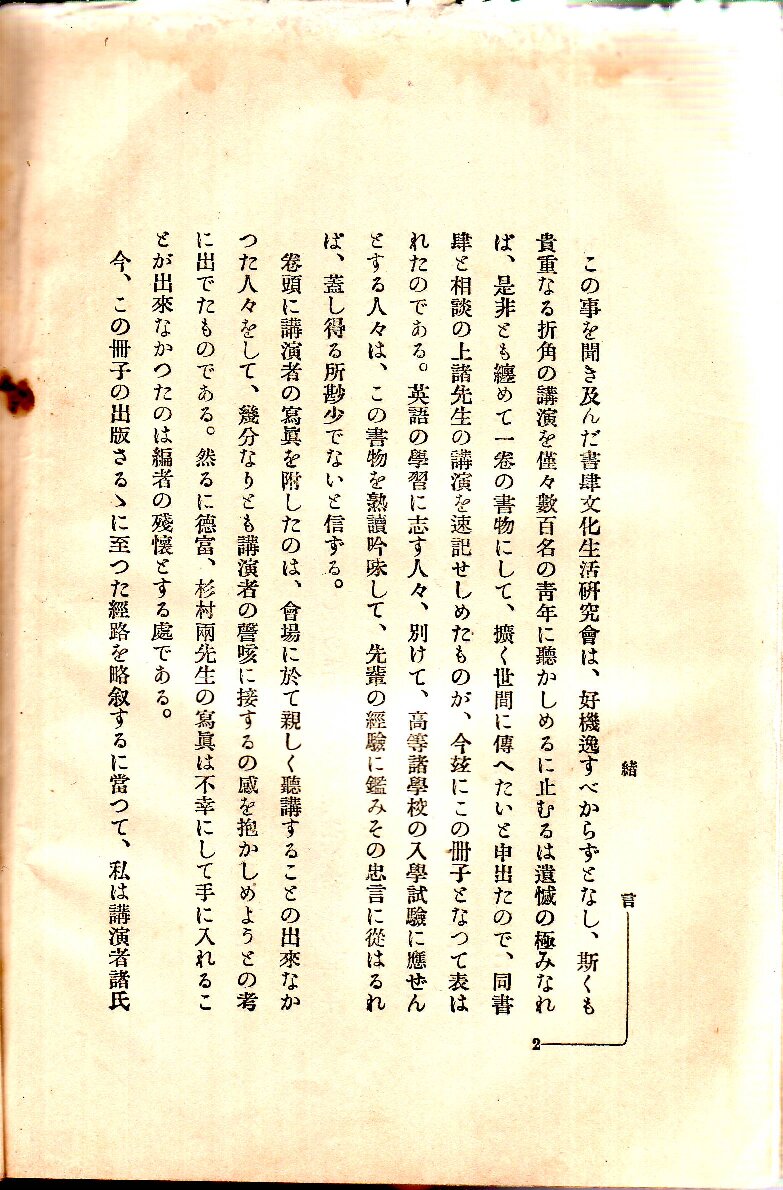 緒言
2
この事を聞き及んだ書肆文化生活硏究會は、好機逸すべからずとなし、斯くも
貴重なる折角の講演を僅々數百名の靑年に聽かしめるに止むるは遺憾の極みなれ
ば、是非とも纏めて一卷の書物にして、擴く世間に傳へたいと申出たので、同書
肆と相談の上諸先生の講演を速記せしめたものが、今玆にこの冊子となつて表は
れたのである。英語の學習に志す人々、別けて、高等諸學校の入學試驗に應ぜん
とする人々は、この書物を熟讀吟味して、先輩の經驗に鑑みその忠言に從はるれ
ば、蓋し得る所尠少でないと信ずる。
卷頭に講演者の寫眞を附したのは、會場に於て親しく聽講することの出來なか
つた人々をして、幾分なりとも講演者の謦咳に接するの感を抱かしめようとの考
に出でたものである。然るに德富、杉村兩先生の寫眞は不幸にして手に入れるこ
とが出來なかつたのは編者の殘懷とする處である。
今、この冊子の出版さるゝに至つた經路を略叙するに當つて、私は講演者諸氏